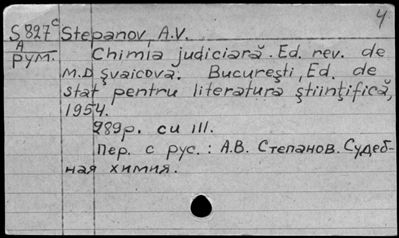 4
S 827c Stepanov, A.V.
A
рум. Chimia judiciară. Ed. rev. de
M.D Şvaicova. Bucureşti, Ed. de
stat pentru literatura ştiinţifică,
1954.
289p. cu ill.
Пер. с рус.: А.В. Степанов. Судеб-
ная химия.